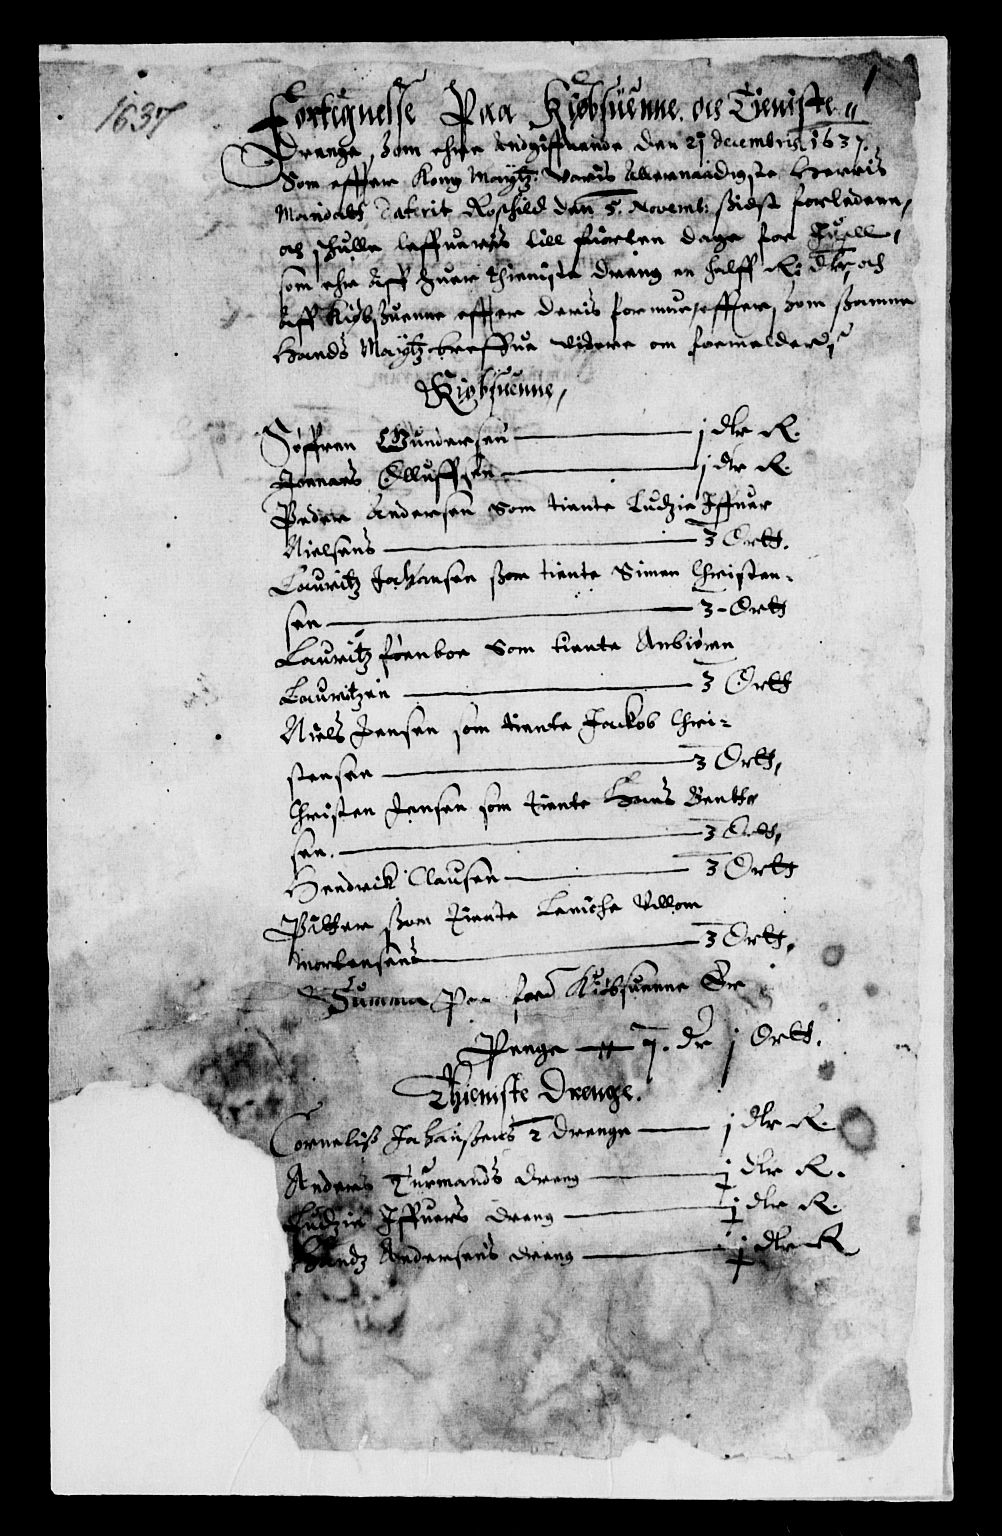 1637
1
Fortegnelse Paa Kiøbsuenne och Tieniste
Drenge, Som ehre Andgiffuende den 21 decembris 1637.
Som effter Kong Maytz: Voris Allernaadigste Herris
Mandatt daterit Roschild den 5. Novemb: sidst forleden,
och schulle leffueris till fiorten dage for Juell,
som ehr Aff huer thieniste dreng en halff R: dlr, och
Aff Kiøbsuenne effter deris formue, effter som samme
Hands Maytz breffue videre om formelder,
Kiøbsuenne,
Søffren Gundersen — j dlr R.
Joenaes Olluffsen — j dlr R.
Peder Andersen som tiente Ludzie Iffuer
Nielsens — 3 Ortt.
Lauritz Johansen som tiente Simen Christen-
sen — 3 Ortt
Lauritz foenboe som tiente Anbiøren
Lauritzen — 3 Ortt
Niels Jensen som tiente Jackob Chri-
stensen — 3 Ortt,
Christen Jensen som tiente Hans Bentt
sen. — 3 Ortt,
Hendrik Clausen — 3 Ortt
Pitter som tiente Leniche Villom
Mortensens — 3 Ortt,
Summa Paa ford Kiøbsuenne Er
Penge — 7. dr j Ortt.
Thieniste Drenge.
Corneliss Johanssens 2 drenge — j dlr R.
Anders Turmands dreng — ½ dlr R.
Ludzie Iffuers dreng — ½ dlr R.
Handz Andersens dreng — ½ dlr R